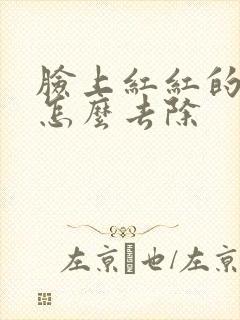 臉上紅紅的
怎麼去除
左京也/左京